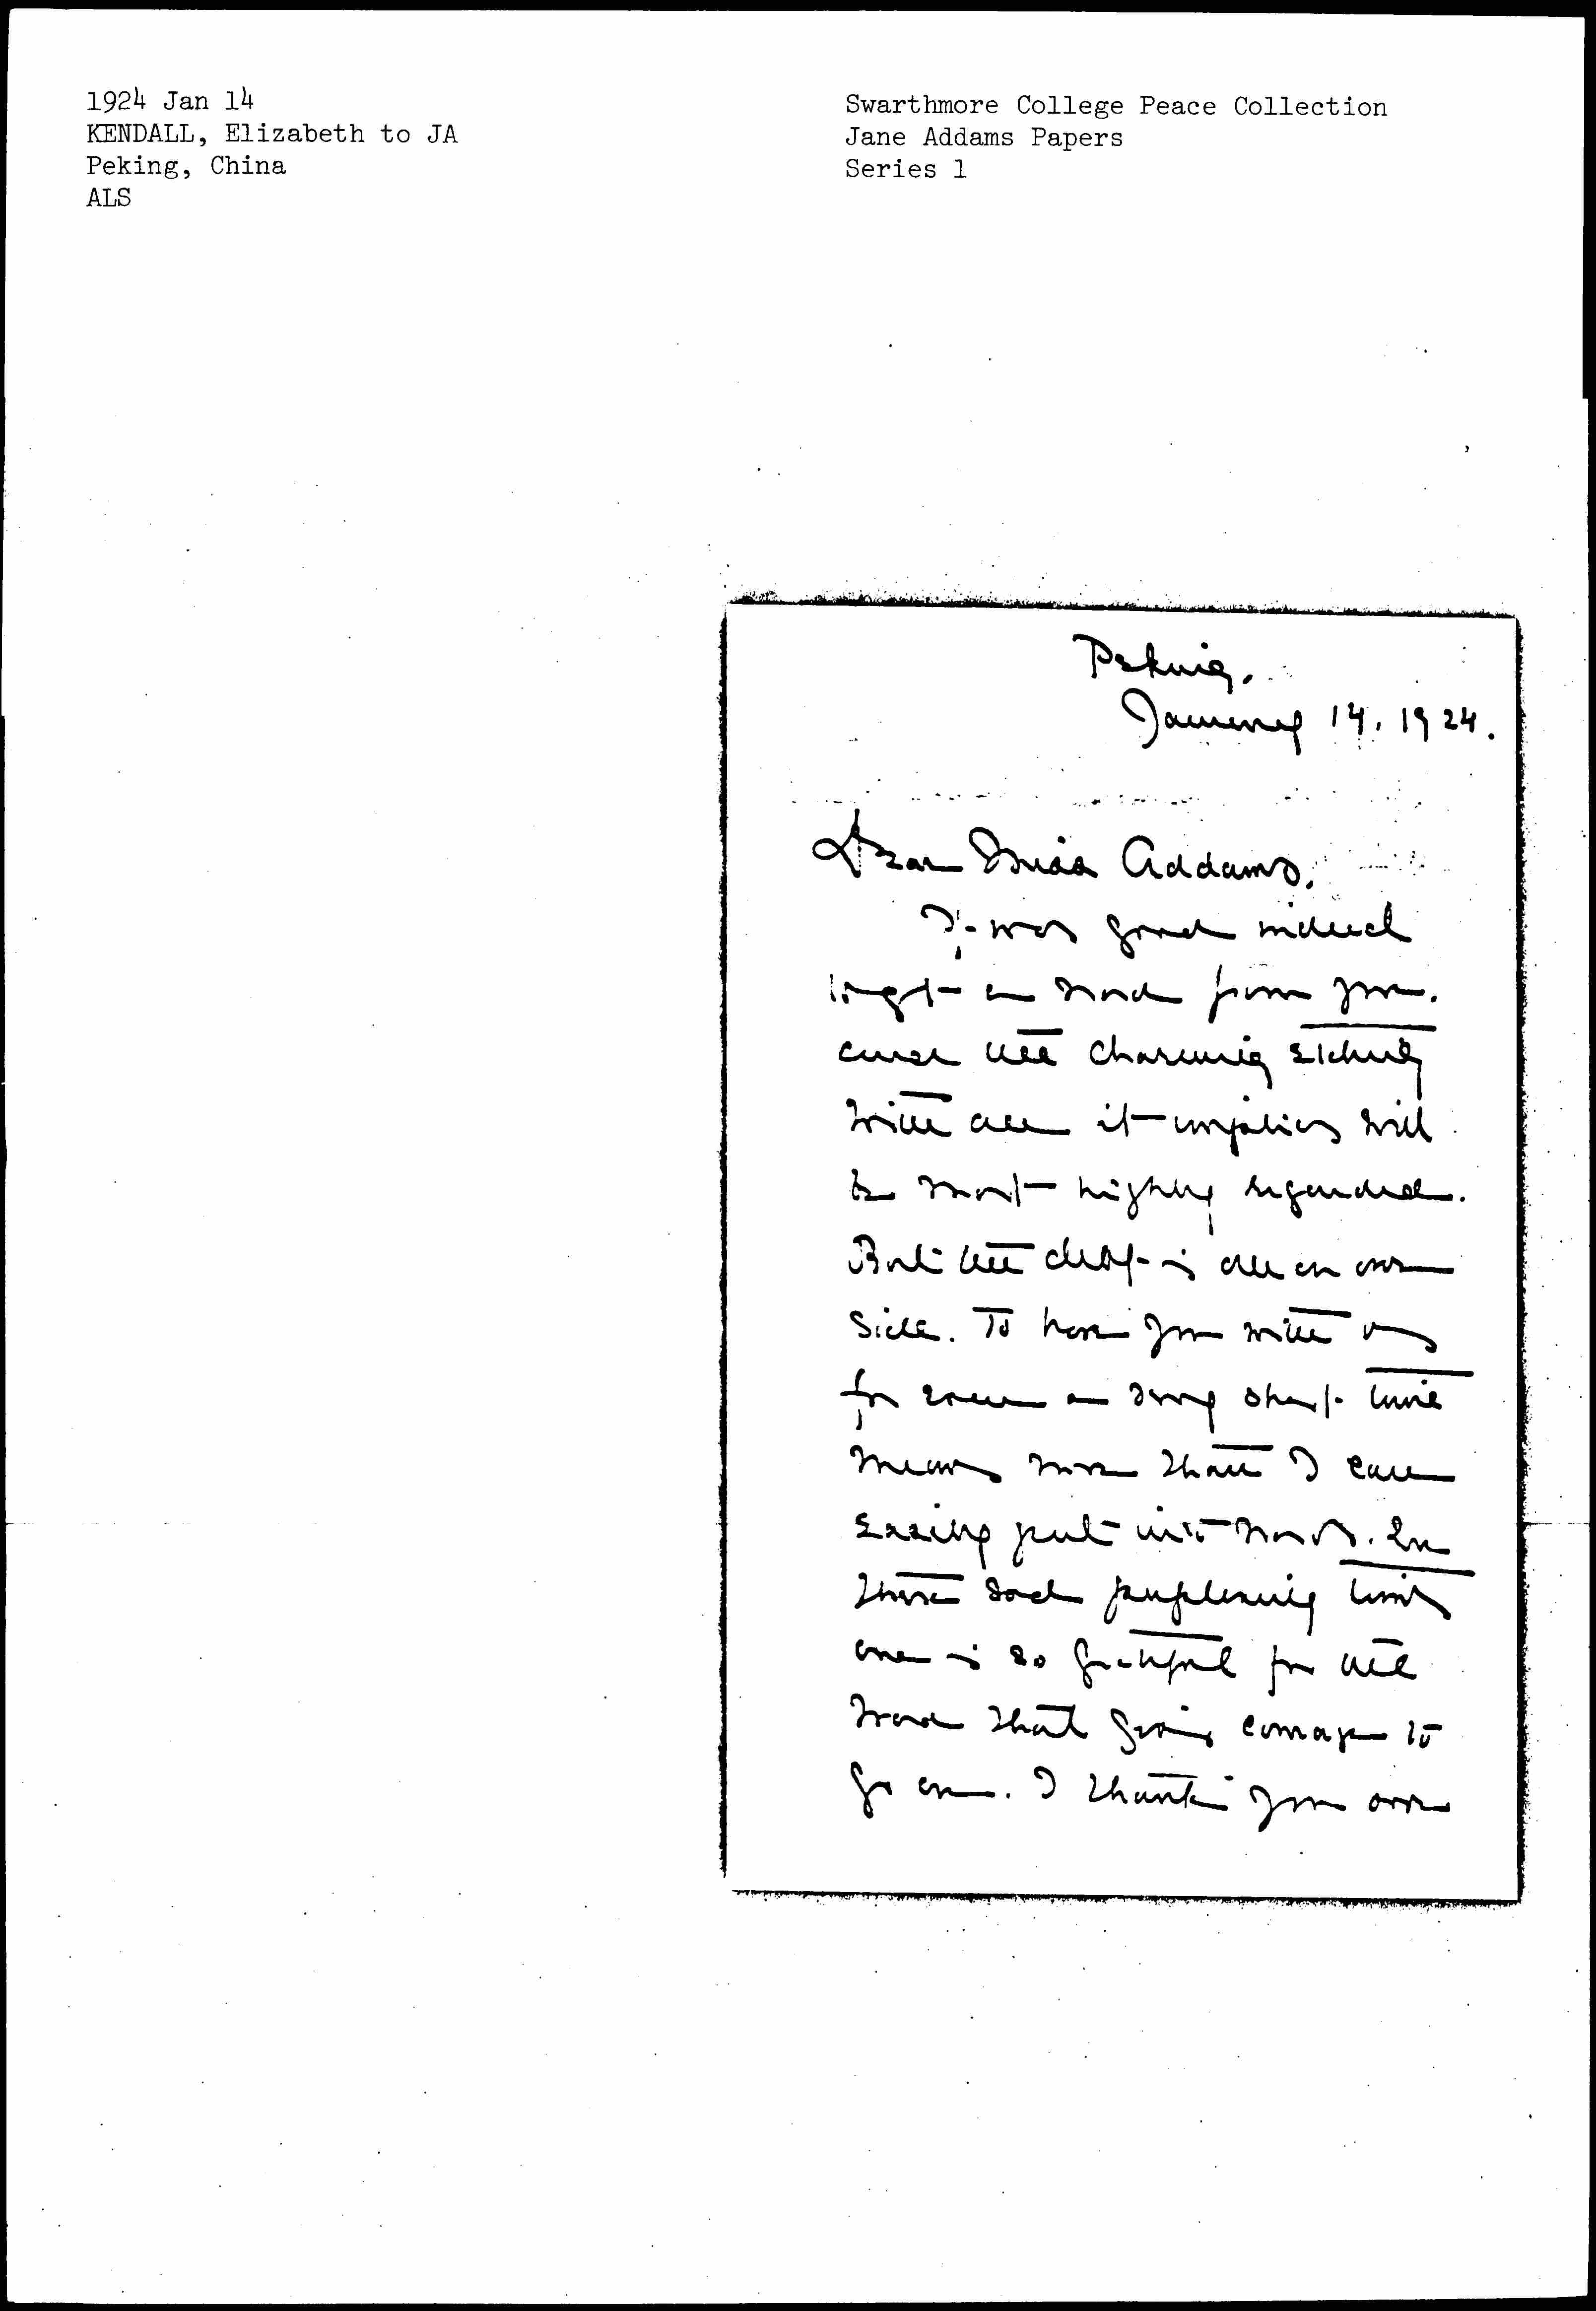 1924 Jan 14
KENDALL, Elizabeth to JA
Peking, China
ALS
Swarthmore College Peace Collection
Jane Addams Papers
Series 1
Peking.
January 14. 1924.
Dear Miss Addams.
It was good indeed
to get a word from you.
and the charming etching
with all it implies will
be most highly regarded.
But the debt is all on our
side. To have you with us
for even a very short time
means more than I can
easily put into words. In
these sad perplexing times
one is so grateful for the
word that gives courage to
go on. I thank you over